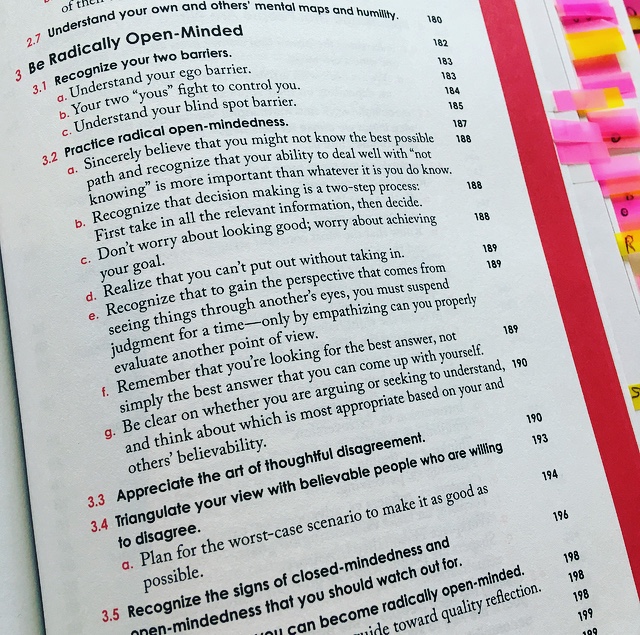 of their
2.7 Understand your own and others' mental maps and humility. 180
3 Be Radically Open-Minded 182
3.1 Recognize your two barriers. 183
a. Understand your ego barrier. 183
b. Your two “yous” fight to control you. 184
c. Understand your blind spot barrier. 185
3.2 Practice radical open-mindedness. 187
a. Sincerely believe that you might not know the best possible 188
path and recognize that your ability to deal well with “not
knowing” is more important than whatever it is you do know.
b. Recognize that decision making is a two-step process: 188
First take in all the relevant information, then decide.
c. Don't worry about looking good; worry about achieving 188
your goal.
d. Realize that you can't put out without taking in. 189
e. Recognize that to gain the perspective that comes from 189
seeing things through another's eyes, you must suspend
judgment for a time—only by empathizing can you properly
evaluate another point of view.
f. Remember that you're looking for the best answer, not 189
simply the best answer that you can come up with yourself.
g. Be clear on whether you are arguing or seeking to understand, 190
and think about which is most appropriate based on your and
others' believability.
3.3 Appreciate the art of thoughtful disagreement. 190
3.4 Triangulate your view with believable people who are willing 193
to disagree.
a. Plan for the worst-case scenario to make it as good as 194
possible.
3.5 Recognize the signs of closed-mindedness and 196
open-mindedness that you should watch out for.
you can become radically open-minded. 198
guide toward quality reflection. 198
198
199
199
R
S